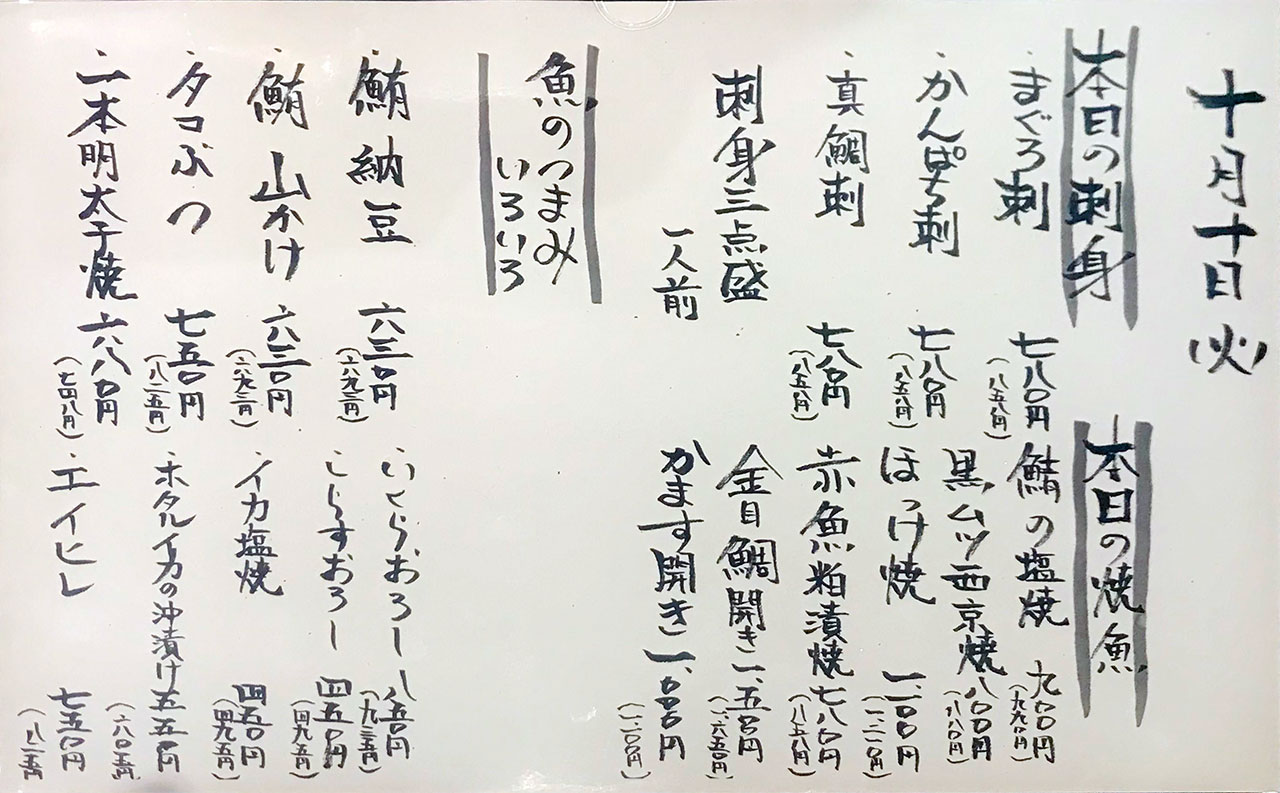 十月十日(火)
本日の刺身
・まぐろ刺 七八〇円
(八五八円)
・かんぱち刺 七八〇円
(八五八円)
・真鯛刺 七八〇円
(八五八円)
刺身三点盛
一人前
本日の焼魚
・鯖の塩焼 九〇〇円
(九九〇円)
黒ムツ西京焼 八〇〇円
(八八〇円)
ほっけ焼 一、一〇〇円
(一、二一〇円)
赤魚粕漬焼 七八〇円
(八五八円)
金目鯛開き 一、五〇〇円
(一、六五〇円)
かます開き 一、〇〇〇円
(一、一〇〇円)
魚のつまみ
いろいろ
・鮪納豆 六三〇円
(六九三円)
・鮪山かけ 六三〇円
(六九三円)
・タコぶつ 七五〇円
(八二五円)
・一本明太子焼 六八〇円
(七四八円)
・いくらおろし 八五〇円
(九三五円)
・しらすおろし 四五〇円
(四九五円)
・イカ塩焼 四五〇円
(四九五円)
・ホタルイカの沖漬け 五五〇円
(六〇五円)
・エイヒレ 七五〇円
(八二五円)